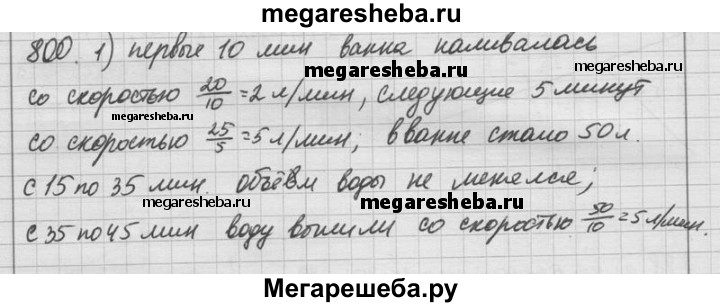 megaresheba.ru
800. 1) первые 10 мин ванна наливалась
megaresheba.ru
megaresheba.ru
со скоростью 20/10 = 2 л/мин, следующие 5 минут
megaresheba.ru
со скоростью 25/5 = 5 л/мин; в ванне стало 50 л.
megaresheba.ru
с 15 по 35 мин. объём воды не менялся;
megaresheba.ru
megaresheba.ru
с 35 по 45 мин воду вылили со скоростью 50/10 = 5 л/мин.
Мегарешеба.ру